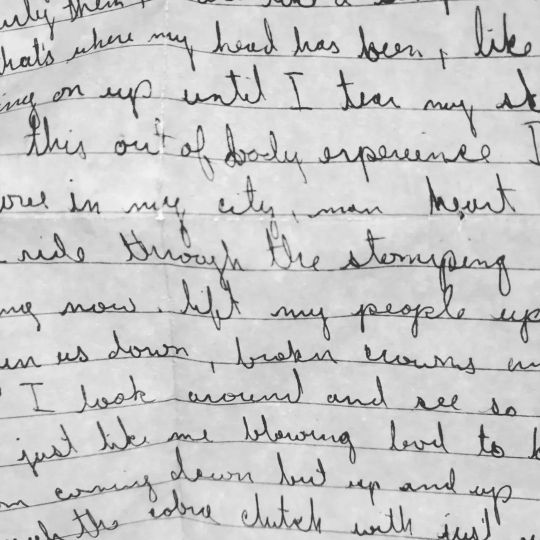 them,
that's where my head has been, like
on up until I tear my
this out of body experience I
in my city, man heart
ride through the stomping
now. lift my people up
us down, broken crowns
I look around and see so
just like me blowing loud to
coming down but up and up
the cobra clutch with just